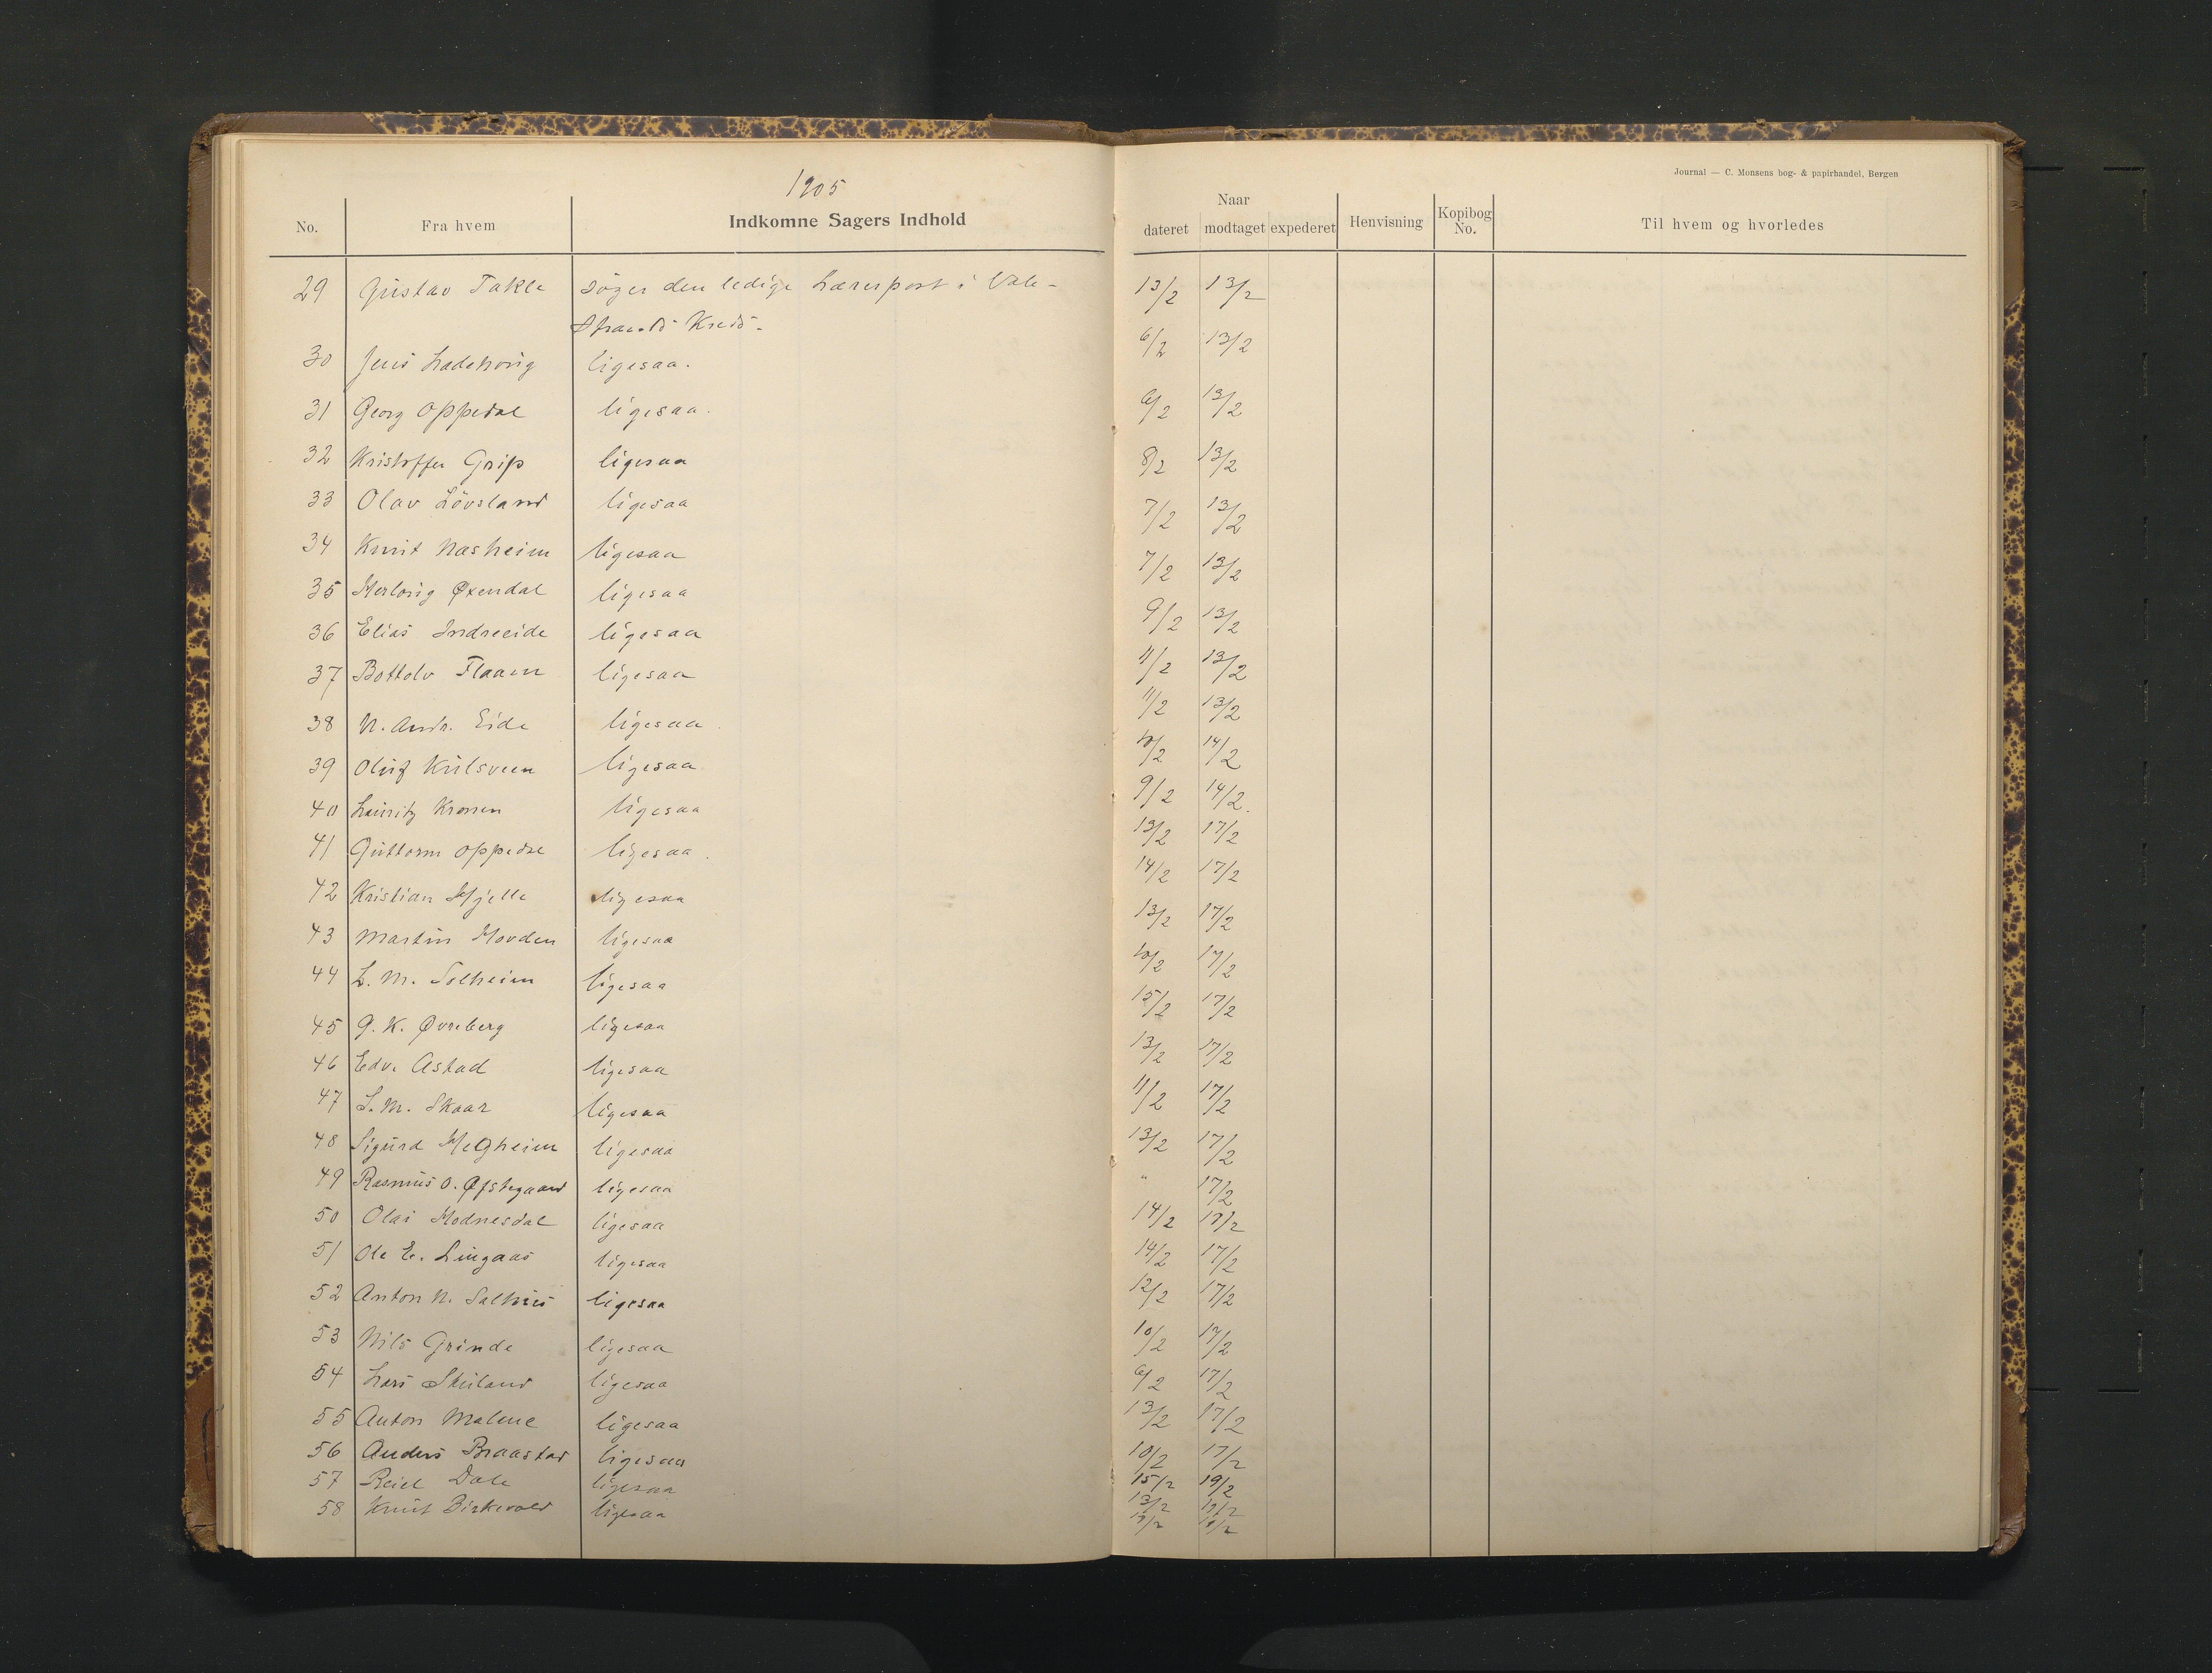 1905
Journal — C. Monsens bog- & papirhandel, Bergen
No. Fra hvem Indkomne Sagers Indhold Naar dateret modtaget expederet Henvisning Kopibog No. Til hvem og hvorledes
29 Gustav Takle søger den ledige Lærerpost i Vale- 13/2 13/2
Strands Kreds.
30 Jens Ladehoug ligesaa. 6/2 13/2
31 Georg Oppedal ligesaa. 6/2 13/2
32 Kristoffer Grip ligesaa 8/2 13/2
33 Olav Lövsland ligesaa 7/2 13/2
34 Knut Næsheim ligesaa 7/2 13/2
35 Herlaug Øxendal ligesaa 9/2 13/2
36 Elias Indreeide ligesaa 11/2 13/2
37 Bottolv Flaam ligesaa 11/2 13/2
38 N. Andr. Eide ligesaa. 10/2 14/2
39 Oluf Kulsveen ligesaa 9/2 14/2.
40 Lauritz ligesaa 13/2 17/2
41 Guttorm Oppedal ligesaa. 14/2 17/2
42 Kristian Hjelle ligesaa 13/2 17/2
43 Martin Hovden ligesaa 10/2 17/2
44 L. M. Solheim ligesaa 15/2 17/2
45 G. K. Øvreberg ligesaa 13/2 17/2
46 Edv. Astad ligesaa 11/2 17/2
47 S. M. Skaar ligesaa 13/2 17/2
48 Sigurd Helgheim ligesaa " 17/2
49 Rasmus O. Øfstegaard ligesaa 14/2 17/2
50 Olai Hodnesdal ligesaa 14/2 17/2
51 Ole E. Lingaas ligesaa 12/2 17/2
52 Anton N. Salhus ligesaa 10/2 17/2
53 Nils Grinde ligesaa 6/2 17/2
54 Lars Skuland ligesaa 13/2 17/2
55 Anton Malme ligesaa 10/2 17/2
56 Anders Braastad ligesaa 15/2 19/2
57 Reiel Dale ligesaa 13/2
58 Knut Birkevold ligesaa